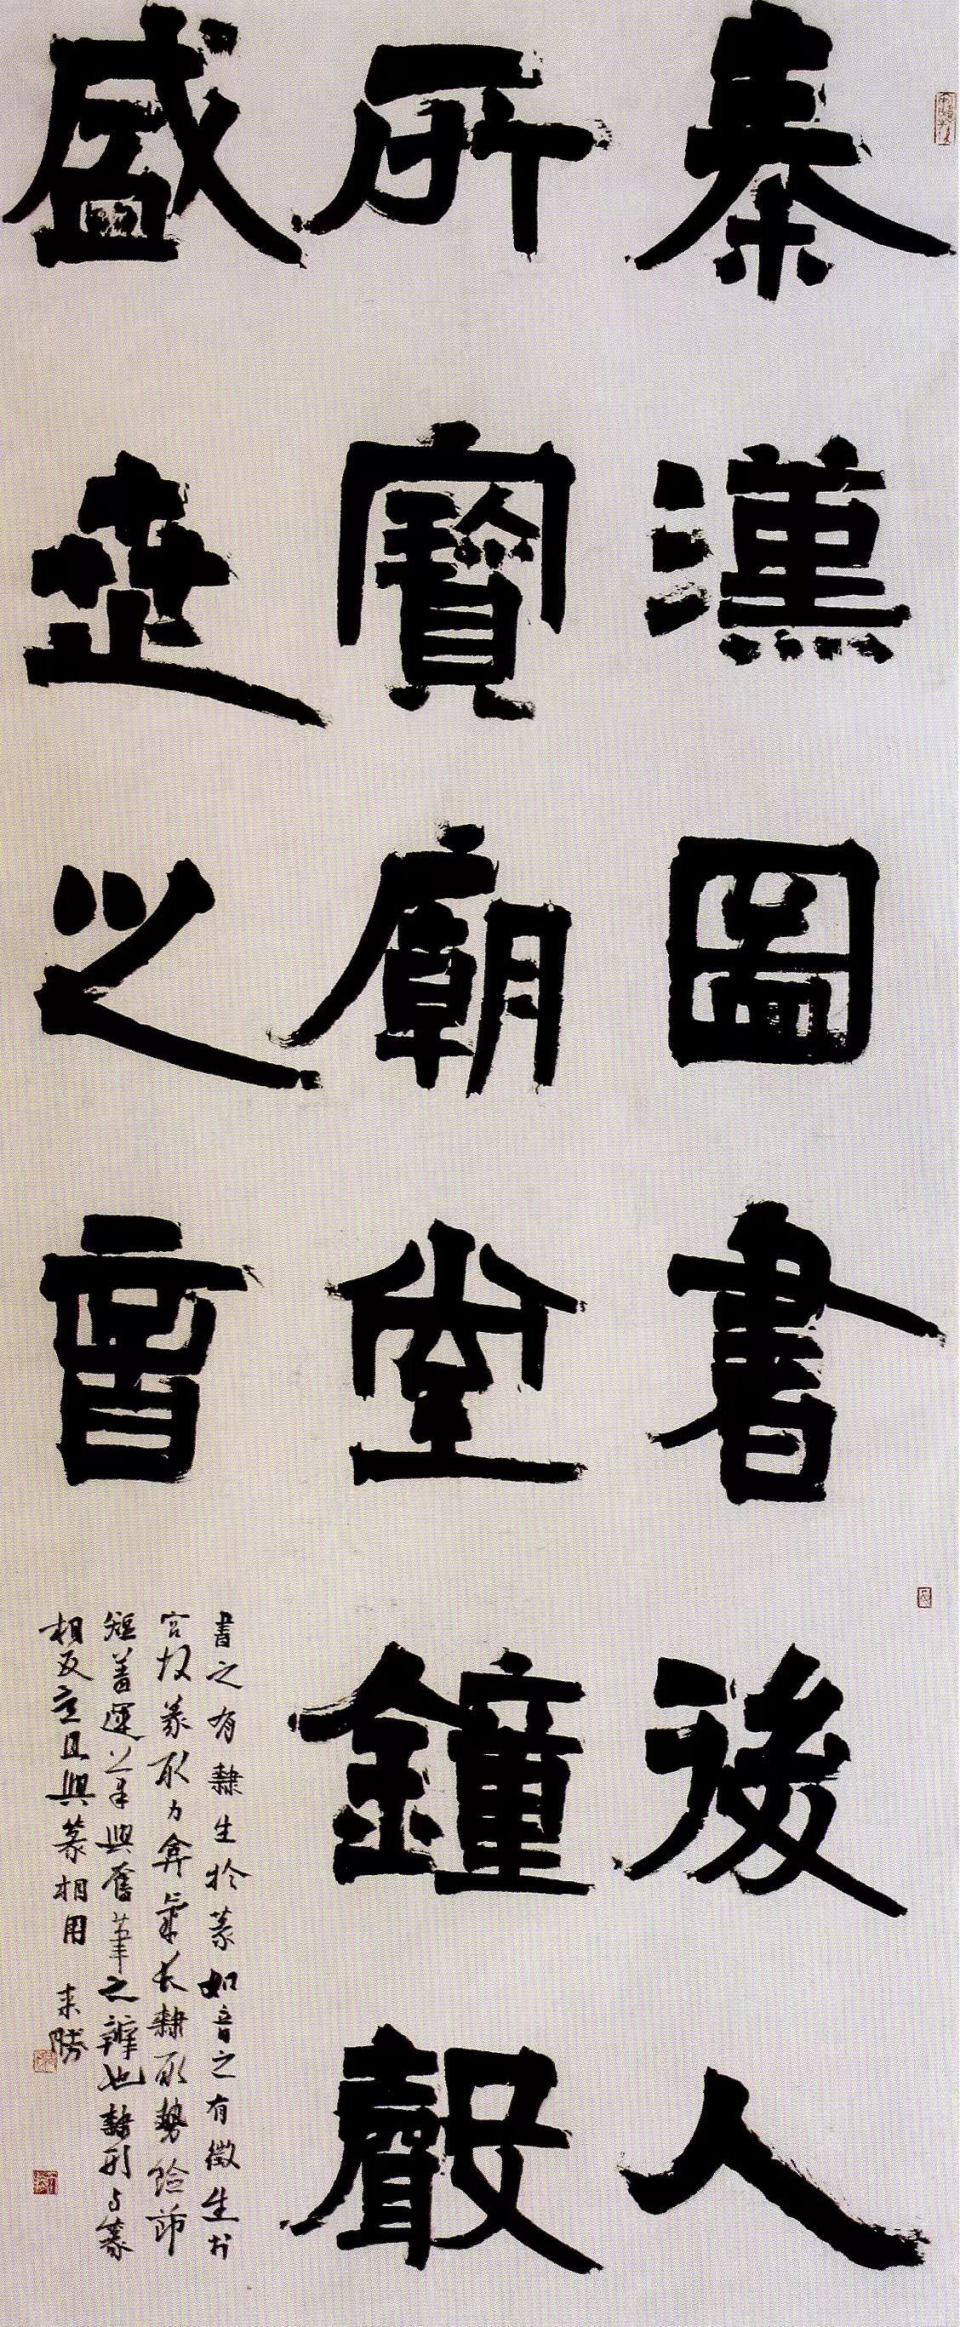 秦漢圖書後人
所寶廟堂鐘聲
盛世之音
書之有隸生於篆如音之有徵生於
宮故篆取力弇氣長隸取勢險節
短蓋運筆與奮筆之辨也隸形與篆
相反意且與篆相用 来勝